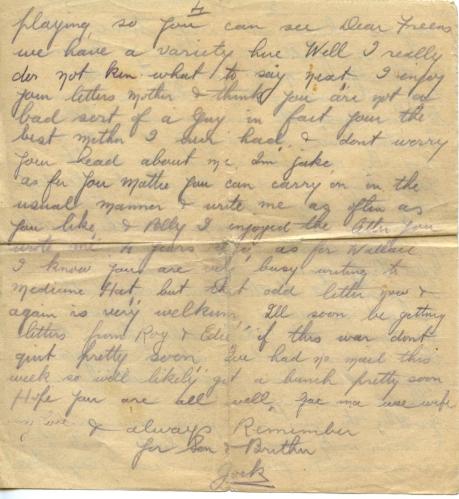 4
playing, so you can see Dear Freens
we have a variety here. Well I really
do not ken what to say next. I enjoy
your letters Mother & think you are not a
bad sort of a Guy in fact your the
best Mother I ever had, & dont worry
your head about me Im jake
as for you Mattie you can carry on in the
usual manner & write me as often as
you like, & Polly I enjoyed the letter you
wrote me, years as for Wallace
I know you are busy writing to
Medicine Hat but that odd letter now &
again is very welkum, I'll soon be getting
letters from Roy & Edie, if this war dont
quit pretty soon I've had no mail this
week so will likely get a bunch pretty soon
Hope you are all well, wife
& always Remember
Son & Bruther
Jock